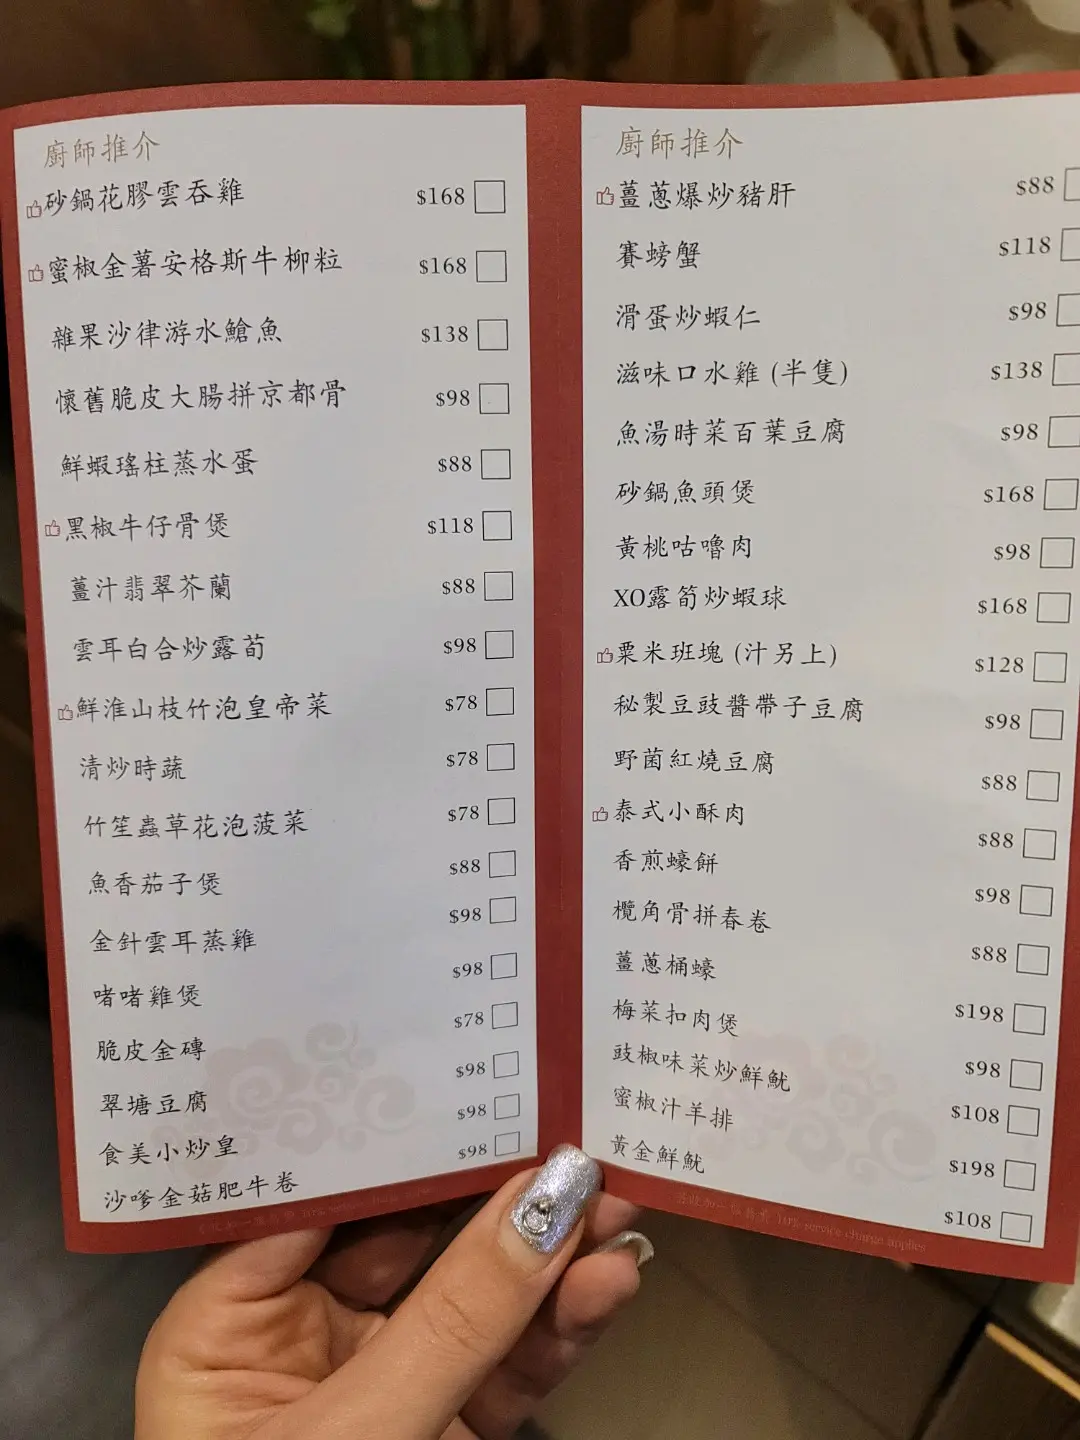 廚師推介
砂鍋花膠雲吞雞 $168
蜜椒金薯安格斯牛柳粒 $168
雜果沙律游水鯧魚 $138
懷舊脆皮大腸拼京都骨 $98
鮮蝦瑤柱蒸水蛋 $88
黑椒牛仔骨煲 $118
薑汁翡翠芥蘭 $88
雲耳白合炒露荀 $98
鮮淮山枝竹泡皇帝菜 $78
清炒時蔬 $78
竹笙蟲草花泡菠菜 $78
魚香茄子煲 $88
金針雲耳蒸雞 $98
啫啫雞煲 $98
脆皮金磚 $78
翠塘豆腐 $98
食美小炒皇 $98
沙嗲金菇肥牛卷 $98
另收加一服務費 10% service charge applies
廚師推介
薑蔥爆炒豬肝 $88
賽螃蟹 $118
滑蛋炒蝦仁 $98
滋味口水雞 (半隻) $138
魚湯時菜百葉豆腐 $98
砂鍋魚頭煲 $168
黃桃咕嚕肉 $98
XO露筍炒蝦球 $168
粟米班塊 (汁另上) $128
秘製豆豉醬帶子豆腐 $98
野菌紅燒豆腐 $88
泰式小酥肉 $88
香煎蠔餅 $98
欖角骨拼春卷 $88
薑蔥桶蠔 $198
梅菜扣肉煲 $98
豉椒味菜炒鮮魷 $108
蜜椒汁羊排 $198
黃金鮮魷 $108
另收加一服務費 10% service charge applies